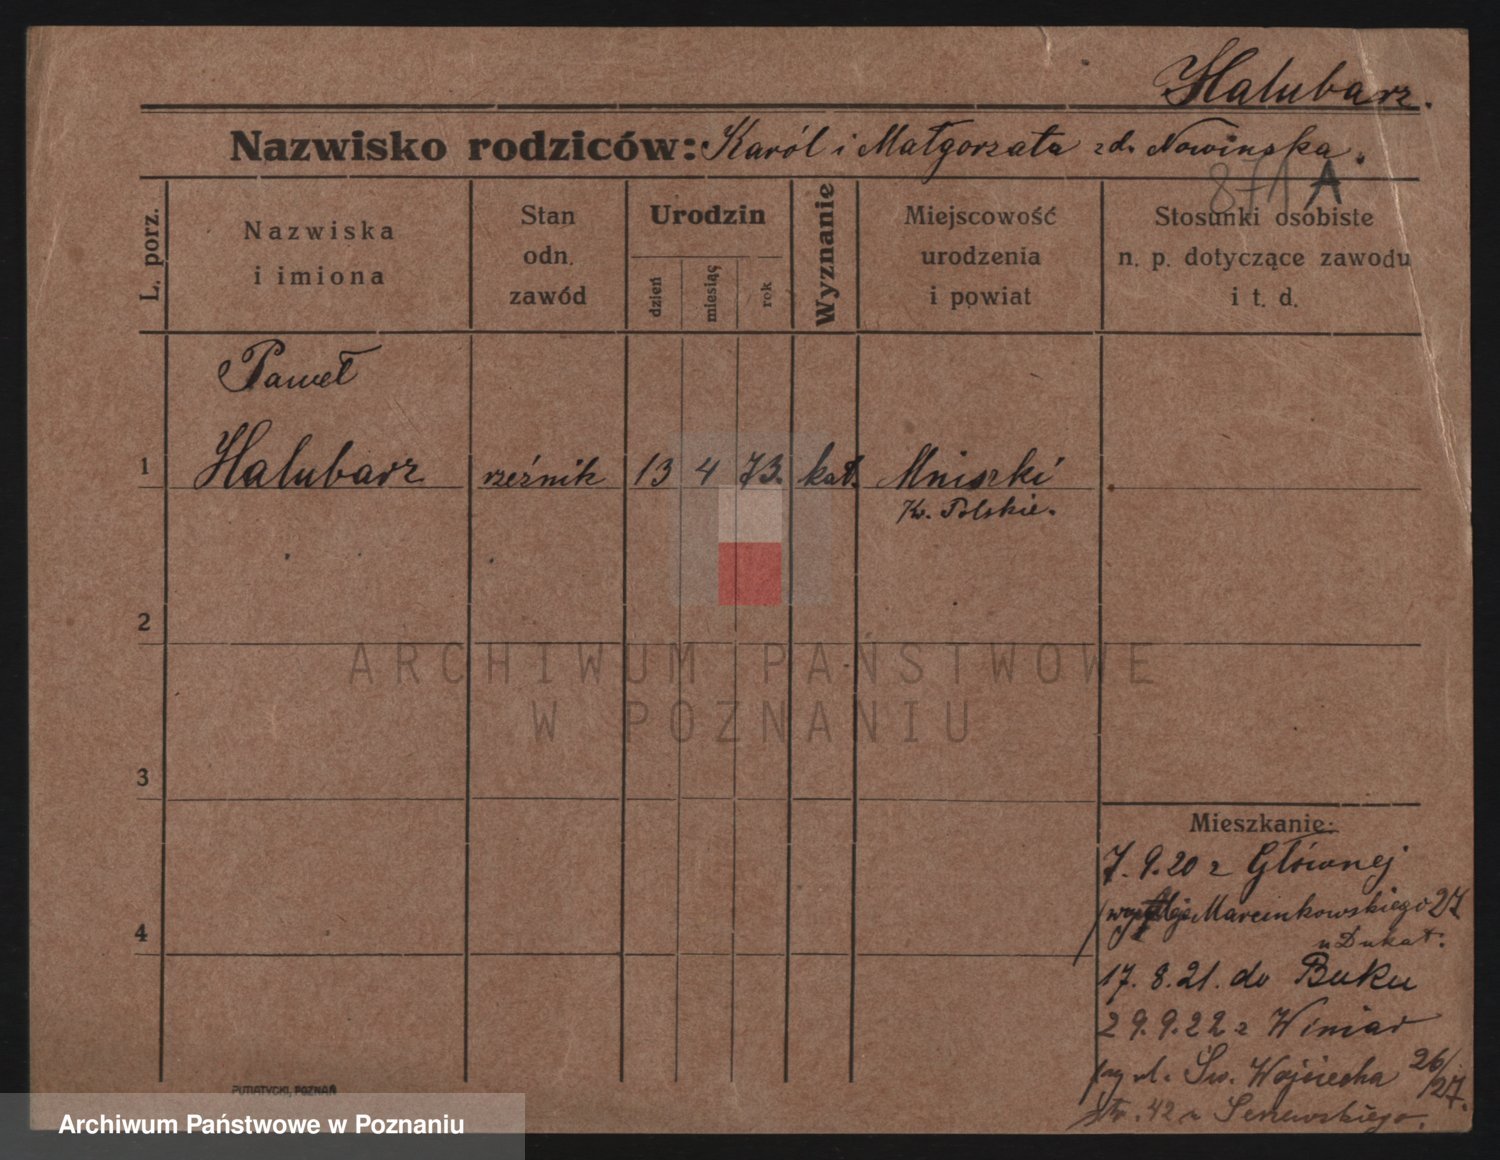 Halubarz.
Nazwisko rodziców: Karól i Małgorzata zd. Nowinska.
871 A
L. porz.
Nazwiska
i imiona
Stan
odn.
zawód
Urodzin
dzień
miesiąc
rok
Wyznanie
Miejscowość
urodzenia
i powiat
Stosunki osobiste
n. p. dotyczące zawodu
i t. d.
Paweł
1 Halubarz rzeźnik 13 4 73. kat. Mniszki
Kr. Polskie.
2
3
4
ARCHIWUM PAŃSTWOWE
W POZNANIU
Mieszkanie:
7.9.20 z Głównej
Marcinkowskiego 27
u Dukat.
17.8.21. do Buku
29.9.22 z Winiar
Św. Wojciecha 26/27.
42
PUTIATYCKI, POZNAŃ
Archiwum Państwowe w Poznaniu